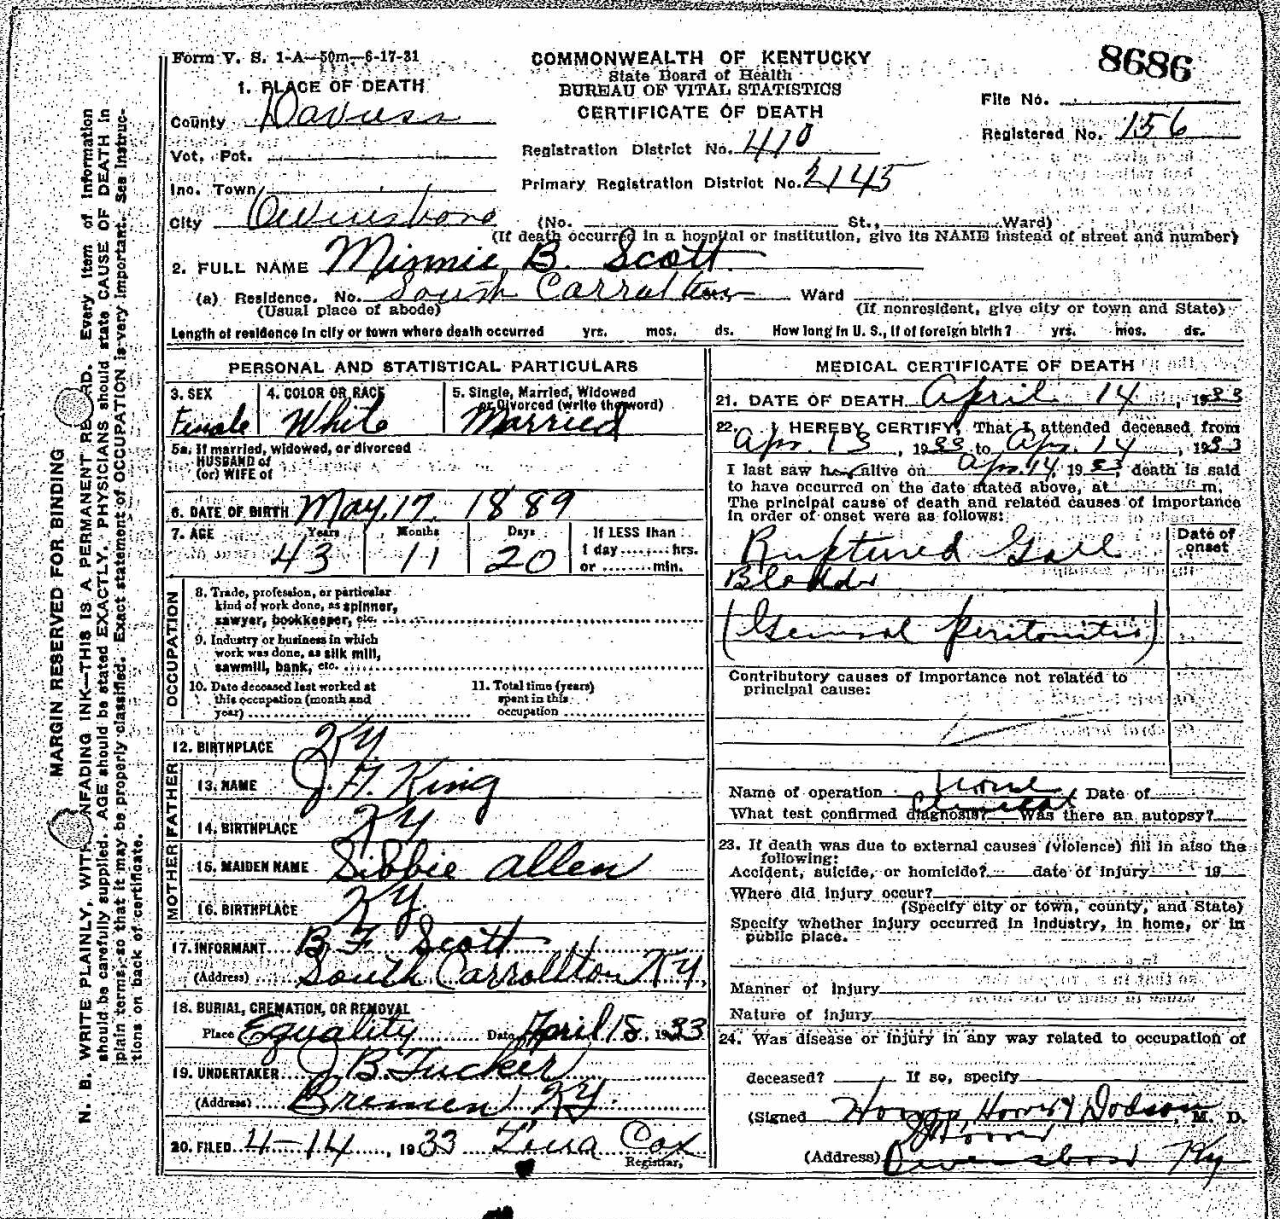 Form V. S. 1-A—50m—6-17-31
COMMONWEALTH OF KENTUCKY
State Board of Health
BUREAU OF VITAL STATISTICS
CERTIFICATE OF DEATH
8686
File No.
Registered No. 156
1. PLACE OF DEATH
County Daviess
Vot. Pct.
Registration District No. 410
Inc. Town
Primary Registration District No. 2145
City Owensboro (No. St., Ward)
(If death occurred in a hospital or institution, give its NAME instead of street and number)
2. FULL NAME Minnie B. Scott
(a) Residence. No. South Carrollton Ward
(Usual place of abode) (If nonresident, give city or town and State)
Length of residence in city or town where death occurred yrs. mos. ds. How long in U. S., if of foreign birth? yrs. mos. ds.
PERSONAL AND STATISTICAL PARTICULARS
3. SEX 4. COLOR OR RACE 5. Single, Married, Widowed
or Divorced (write the word)
Female White Married
5a. If married, widowed, or divorced
HUSBAND of
(or) WIFE of
6. DATE OF BIRTH May 17 1889
7. AGE Years Months Days If LESS than
43 11 20 1 day ........ hrs.
or ........ min.
OCCUPATION
8. Trade, profession, or particular
kind of work done, as spinner,
sawyer, bookkeeper, etc.
9. Industry or business in which
work was done, as silk mill,
sawmill, bank, etc.
10. Date deceased last worked at 11. Total time (years)
this occupation (month and spent in this
year) occupation
12. BIRTHPLACE Ky
FATHER
13. NAME J. H. King
14. BIRTHPLACE Ky
MOTHER
15. MAIDEN NAME Sibbie Allen
16. BIRTHPLACE Ky.
17. INFORMANT B F Scott
(Address) South Carrollton Ky.
18. BURIAL, CREMATION, OR REMOVAL
Place Equality Date April 15, 1933
19. UNDERTAKER J. B. Tucker
(Address) Bremen Ky.
20. FILED 4-14, 1933 Cox
Registrar.
MEDICAL CERTIFICATE OF DEATH
21. DATE OF DEATH April 14, 1933
22. I HEREBY CERTIFY, That I attended deceased from
Apr. 13, 1933 to Apr. 14, 1933
I last saw her alive on Apr. 14, 1933 death is said
to have occurred on the date stated above, at m.
The principal cause of death and related causes of importance
in order of onset were as follows:
Date of
onset
Ruptured Gall
Bladder
(General peritonitis)
Contributory causes of importance not related to
principal cause:
Name of operation none Date of
What test confirmed diagnosis? clinical Was there an autopsy?
23. If death was due to external causes (violence) fill in also the
following:
Accident, suicide, or homicide? date of injury 19
Where did injury occur?
(Specify city or town, county, and State)
Specify whether injury occurred in industry, in home, or in
public place.
Manner of injury
Nature of injury
24. Was disease or injury in any way related to occupation of
deceased? If so, specify
(Signed Dodson, M. D.
(Address) Owensboro Ky
MARGIN RESERVED FOR BINDING
N. B. WRITE PLAINLY, WITH UNFADING INK—THIS IS A PERMANENT RECORD. Every item of information
should be carefully supplied. AGE should be stated EXACTLY. PHYSICIANS should state CAUSE OF DEATH in
plain terms, so that it may be properly classified. Exact statement of OCCUPATION is very important. See instruc-
tions on back of certificate.